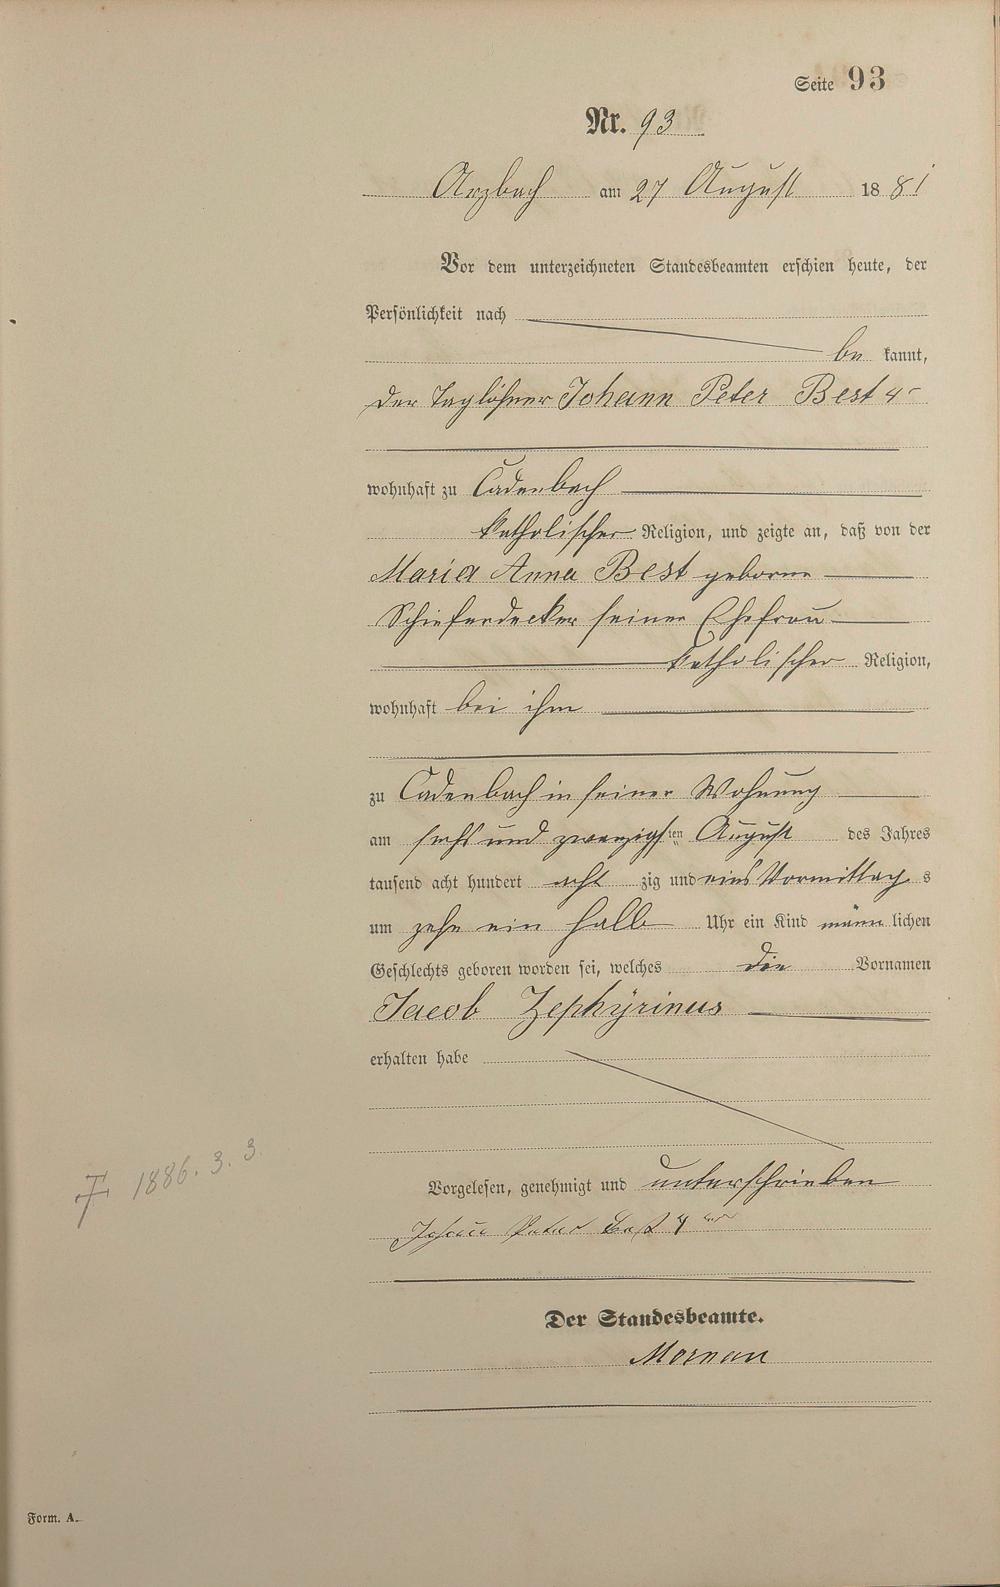 Seite 93
Nr. 93
Arzbach am 27 August 1881
Vor dem unterzeichneten Standesbeamten erschien heute, der
Persönlichkeit nach
be kannt,
der Taglöhner Johann Peter Best 4
wohnhaft zu Cadenbach
katholischer Religion, und zeigte an, daß von der
Maria Anna Best geborne
Schieferdecker seiner Ehefrau
katholischer Religion,
wohnhaft bei ihm
zu Cadenbach in seiner Wohnung
am sechs und zwanzigsten August des Jahres
tausend acht hundert acht zig und eins Vormittag s
um zehn ein halb Uhr ein Kind männ lichen
Geschlechts geboren worden sei, welches die Vornamen
Jacob Zephÿrinus
erhalten habe
1886. 3. 3.
Vorgelesen, genehmigt und unterschrieben
Johann Peter Best 4
Der Standesbeamte.
Form. A.